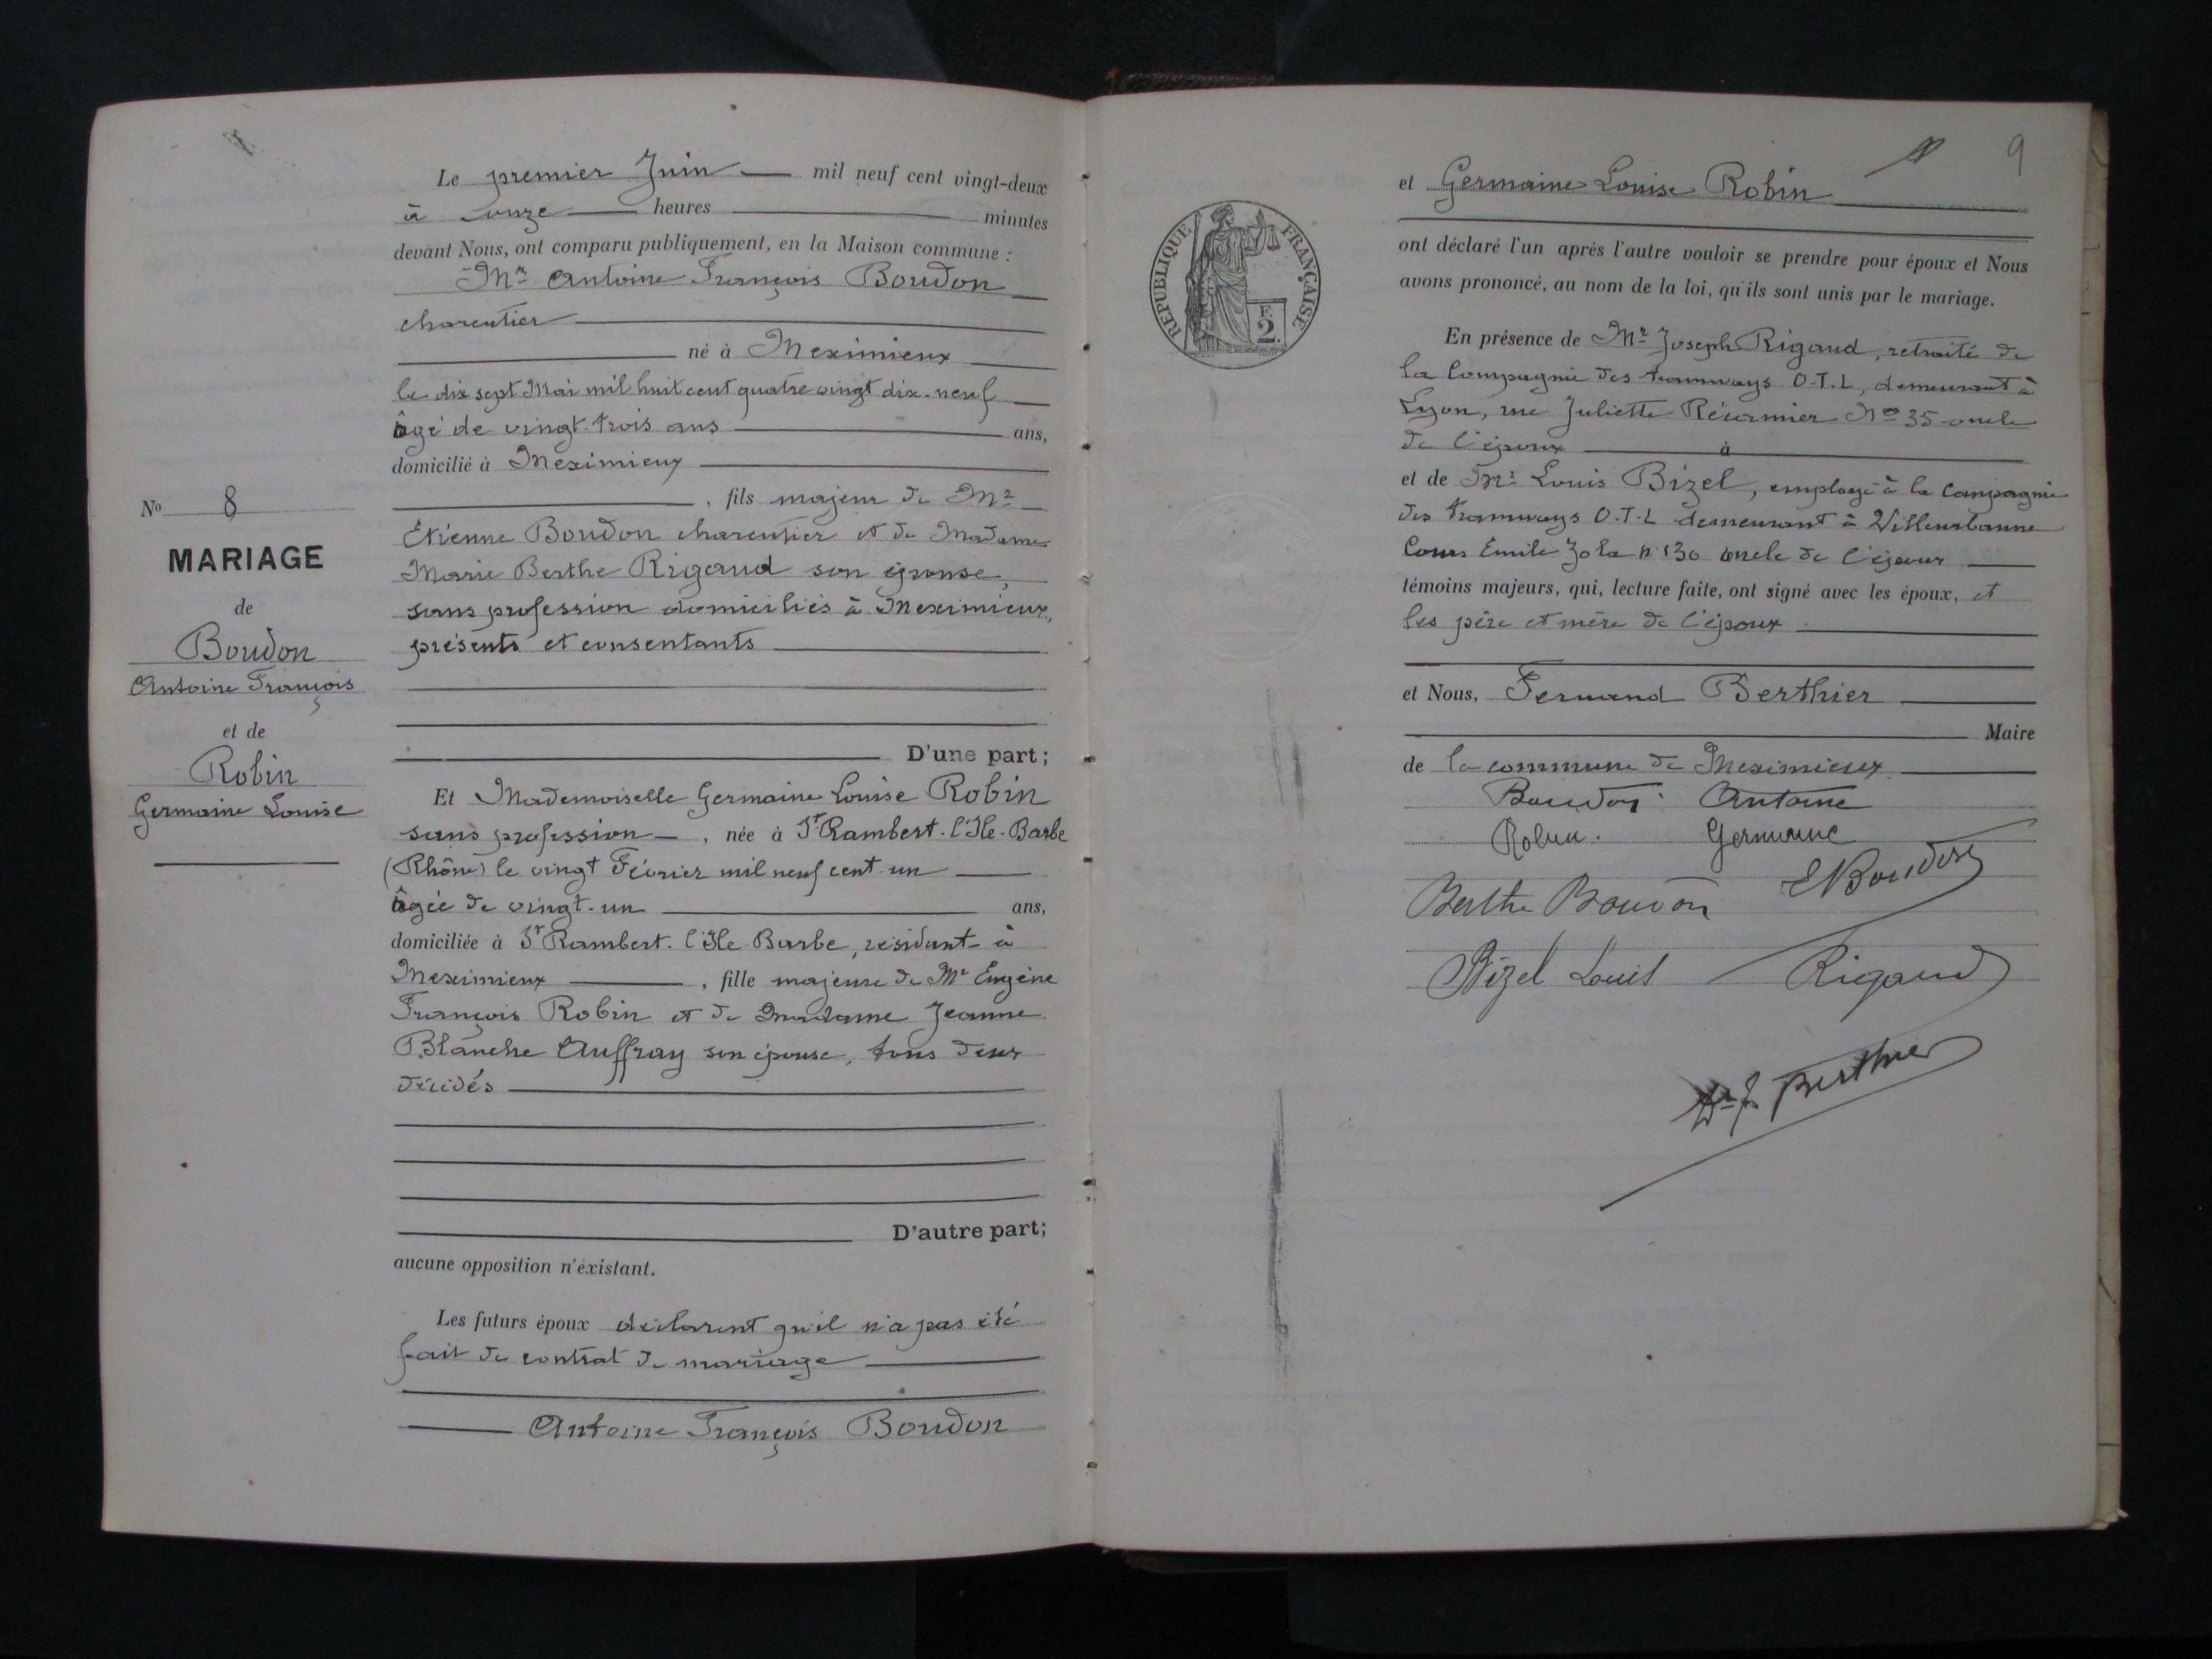 No 8
MARIAGE
de
Boudon
Antoine François
et de
Robin
Germaine Louise
Le premier Juin mil neuf cent vingt-deux
à onze heures minutes
devant Nous, ont comparu publiquement, en la Maison commune :
Mr Antoine François Boudon
charcutier
né à Meximieux
le dix sept Mai mil huit cent quatre vingt dix-neuf
âgé de vingt-trois ans ans,
domicilié à Meximieux
, fils majeur de Mr
Etienne Boudon charcutier et de Madame
Marie Berthe Rigaud son épouse,
sans profession domiciliés à Meximieux,
présents et consentants
D'une part ;
Et Mademoiselle Germaine Louise Robin
sans profession , née à St Rambert-l'Ile-Barbe
(Rhône) le vingt Février mil neuf cent-un
âgée de vingt-un ans,
domiciliée à St Rambert-l'Ile-Barbe, résidant à
Meximieux , fille majeure de Mr Eugène
François Robin et de Madame Jeanne
Blanche Auffray son épouse, tous deux
décédés
D'autre part;
aucune opposition n'existant.
Les futurs époux déclarent qu'il n'a pas été
fait de contrat de mariage
Antoine François Boudon
9
RÉPUBLIQUE FRANÇAISE
F.
2.
et Germaine Louise Robin
ont déclaré l'un après l'autre vouloir se prendre pour époux et Nous
avons prononcé, au nom de la loi, qu'ils sont unis par le mariage.
En présence de Mr Joseph Rigaud, retraité de
la Compagnie des tramways O.T.L, demeurant à
Lyon, rue Juliette Récamier No 35 oncle
de l'époux à
et de Mr Louis Bizel, employé à la Compagnie
des tramways O.T.L demeurant à Villeurbanne
Cours Emile Zola n° 130 oncle de l'époux
témoins majeurs, qui, lecture faite, ont signé avec les époux, et
les père et mère de l'époux
et Nous, Fernand Berthier
Maire
de la commune de Meximieux
Boudon Antoine
Robin. Germaine
Berthe Boudon E Boudon
Bizel Louis Rigaud
Dr F. Berthier